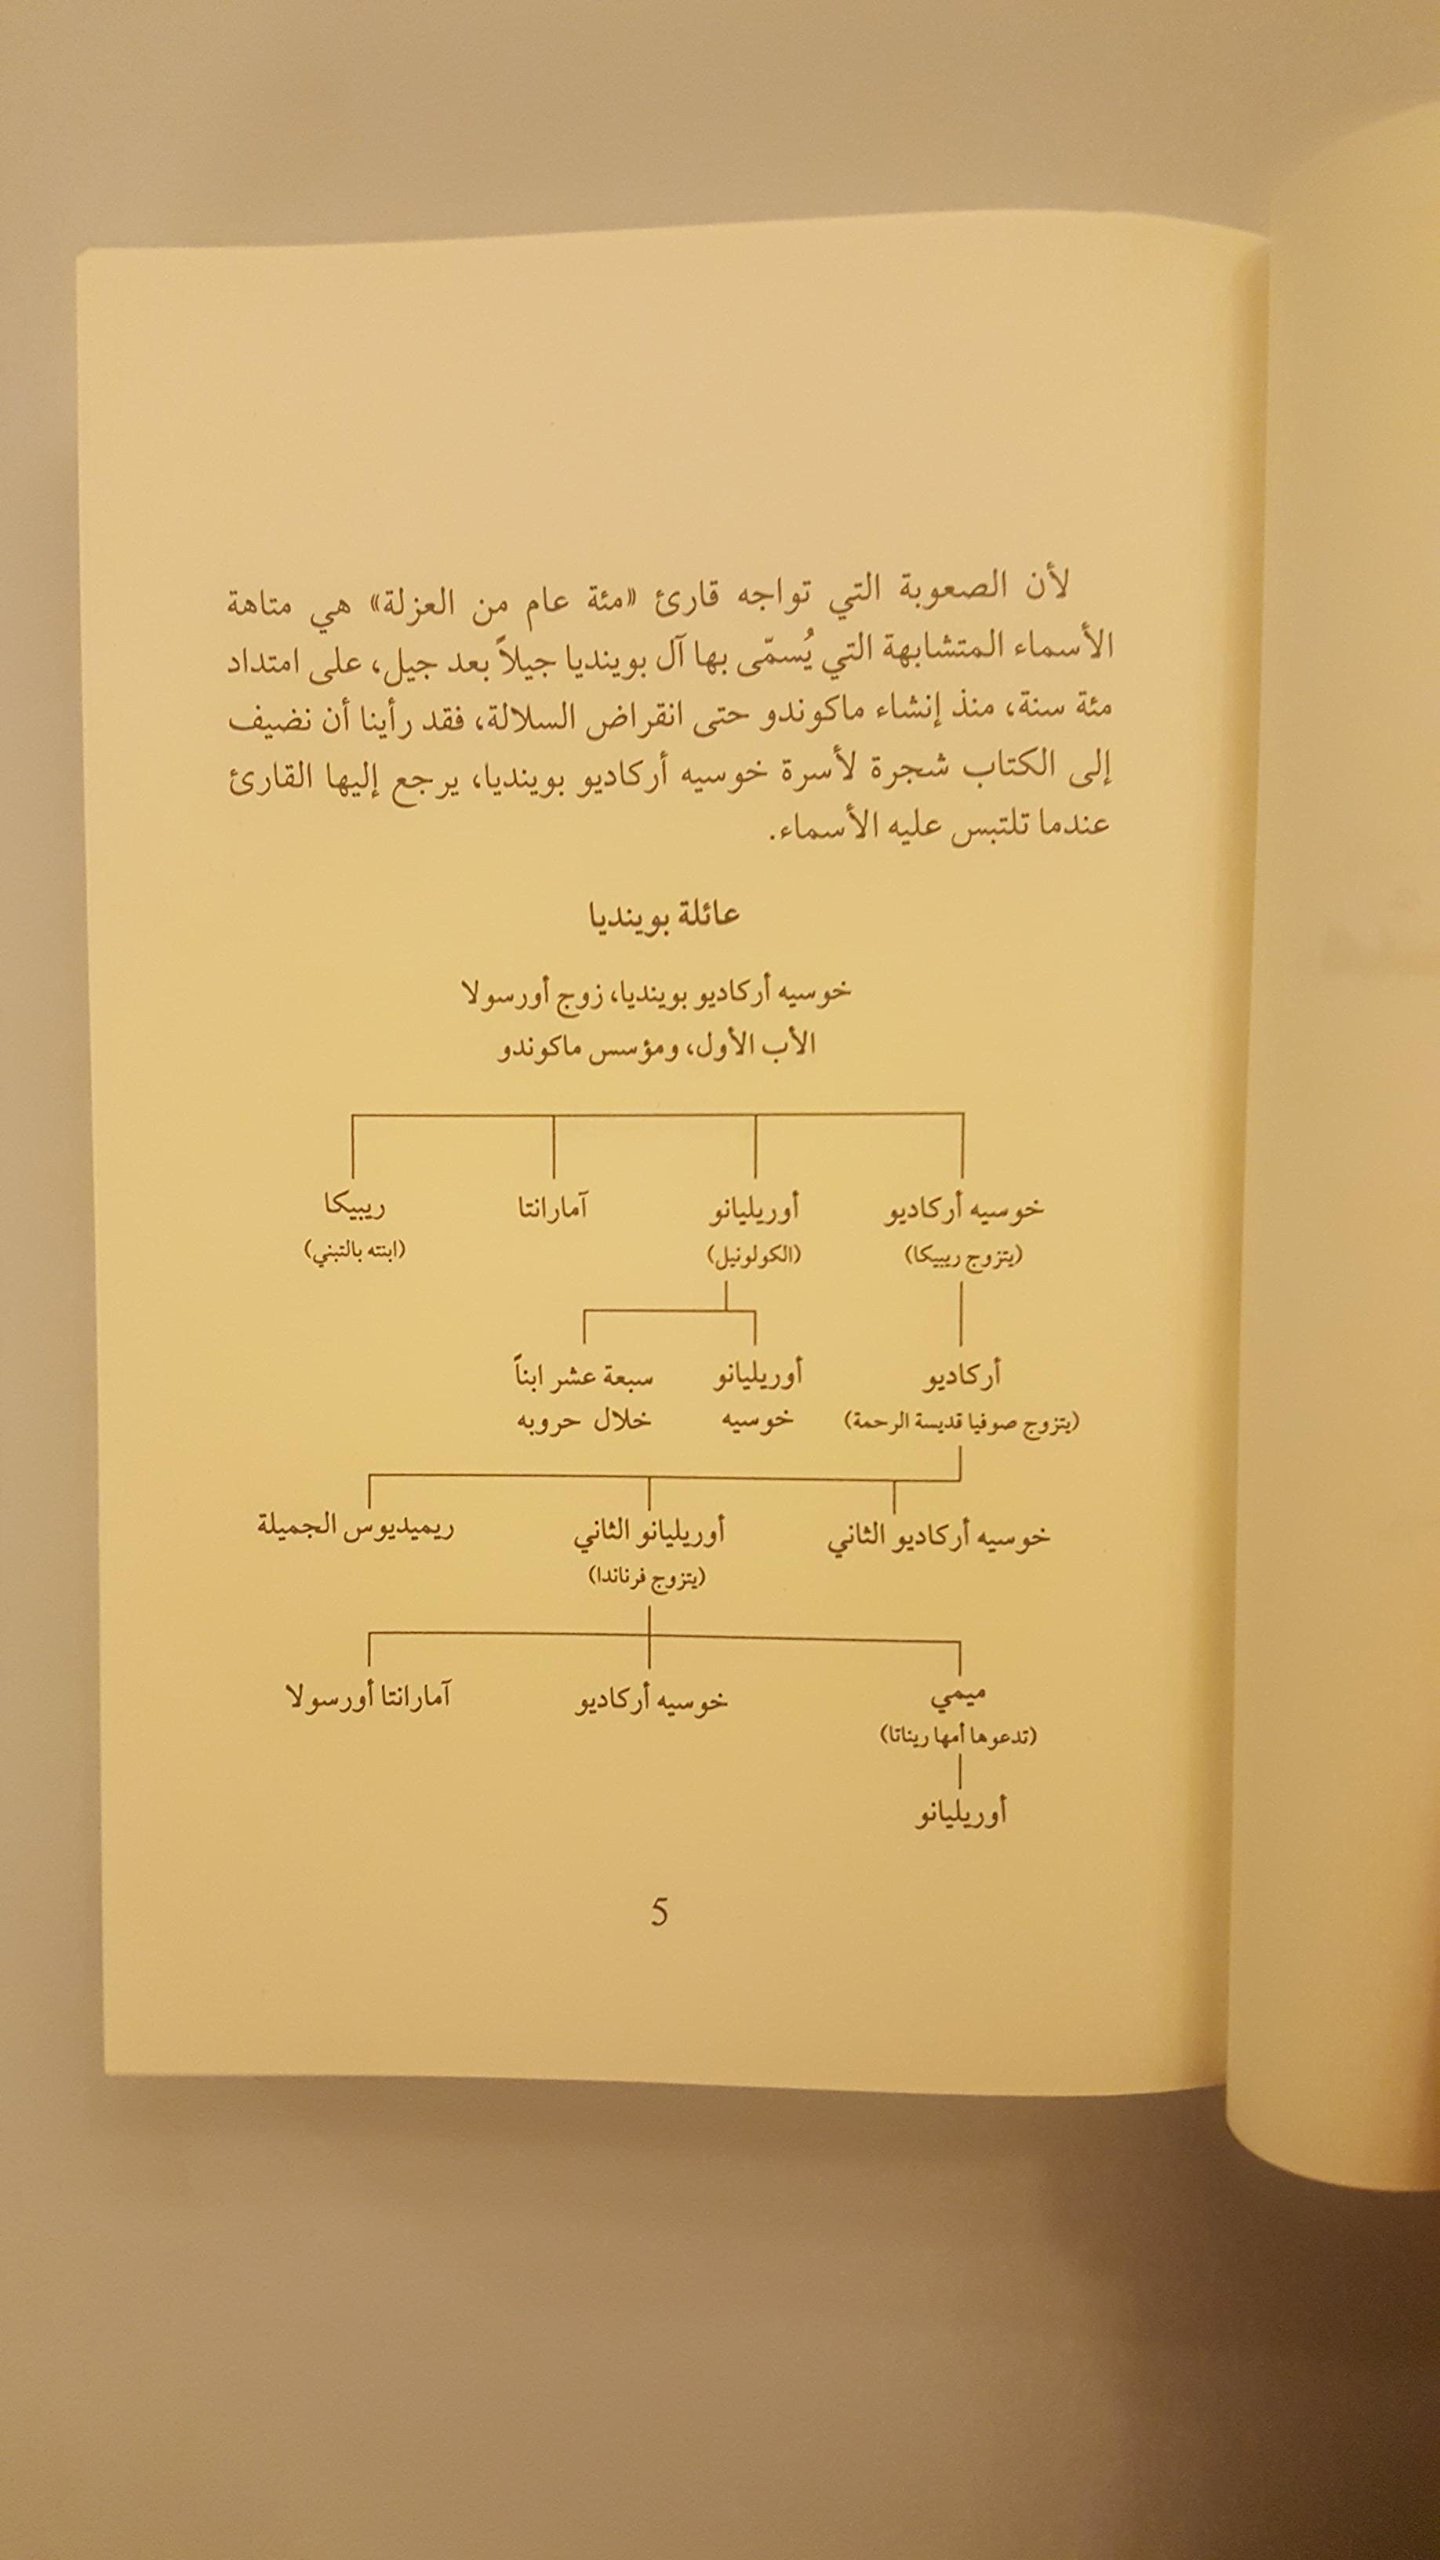 لأن الصعوبة التي تواجه قارئ «مئة عام من العزلة» هي متاهة
الأسماء المتشابهة التي يُسمّى بها آل بوينديا جيلاً بعد جيل، على امتداد
مئة سنة، منذ إنشاء ماكوندو حتى انقراض السلالة، فقد رأينا أن نضيف
إلى الكتاب شجرة لأسرة خوسيه أركاديو بوينديا، يرجع إليها القارئ
عندما تلتبس عليه الأسماء.
عائلة بوينديا
خوسيه أركاديو بوينديا، زوج أورسولا
الأب الأول، ومؤسس ماكوندو
خوسيه أركاديو أوريليانو آمارانتا ريبيكا
(يتزوج ريبيكا) (الكولونيل) (ابنته بالتبني)
أركاديو أوريليانو سبعة عشر ابناً
(يتزوج صوفيا قديسة الرحمة) خوسيه خلال حروبه
خوسيه أركاديو الثاني أوريليانو الثاني ريميديوس الجميلة
(يتزوج فرناندا)
ميمي خوسيه أركاديو آمارانتا أورسولا
(تدعوها أمها ريناتا)
أوريليانو
5